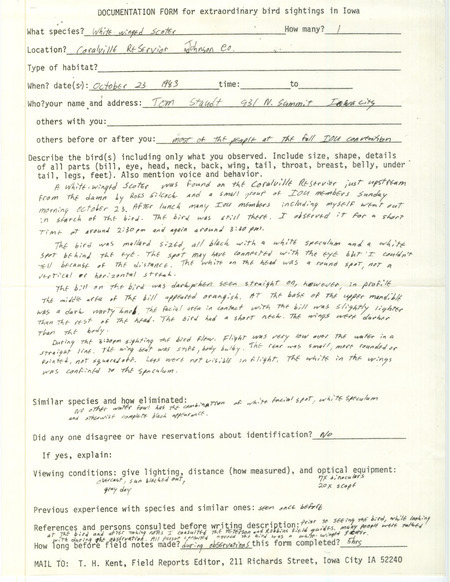 DOCUMENTATION FORM for extraordinary bird sightings in Iowa
What species? White winged Scoter How many? 1
Location? Coralville Reservior Johnson Co.
Type of habitat?
When? date(s): October 23 1983 time: to
Who? your name and address: Tom Staudt 931 N. Summit Iowa City
others with you:
others before or after you: most of the people at the fall IOU convention
Describe the bird(s) including only what you observed. Include size, shape, details
of all parts (bill, eye, head, neck, back, wing, tail, throat, breast, belly, under
tail, legs, feet). Also mention voice and behavior.
A White-winged Scoter was found on the Coralville Reservior just upstream
from the damn by Ross Silcock and a small group of IOU members Sunday
morning October 23. After lunch many IOU members including myself went out
in search of the bird. The bird was still there. I observed it for a short
time at around 2:30 pm and again around 3:20 pm.
The bird was mallard sized, all black with a white speculum and a white
spot behind the eye. The spot may have connected with the eye but I couldn't
tell because of the distance. The white on the head was a round spot, not a
vertical or horizontal streak.
The bill on the bird was dark when seen straight on, however, in profile
the middle area of the bill appeared orangish. At the base of the upper mandible
was a dark warty knob. The facial area in contact with the bill was slightly lighter
than the rest of the head. The bird had a short neck. The wings were darker
than the body.
During the 3:20pm sighting the bird flew. Flight was very low over the water in a
straight line. The wing beat was stiff, body bulky. The rear was small, more rounded or
pointed, not squared off. Legs were not visible in flight. The white in the wings
was confined to the speculum.
Similar species and how eliminated:
No other water fowl has the combination of white facial spot, white speculum
and otherwise complete black appearance.
Did any one disagree or have reservations about identification? No
If yes, explain:
Viewing conditions: give lighting, distance (how measured), and optical equipment:
overcast, sun blocked out, 7X binoculars
gray day 20X scope
Previous experience with species and similar ones: seen once before
References and persons consulted before writing description: prior to seeing the bird, while looking
at the bird and after taking notes I consulted the Peterson and Robbins field guides. many people were talked
with during the observation. All persons agreed the bird was a white-winged Scoter.
How long before field notes made? during observations this form completed? 5hrs
MAIL TO: T. H. Kent, Field Reports Editor, 211 Richards Street, Iowa City IA 52240